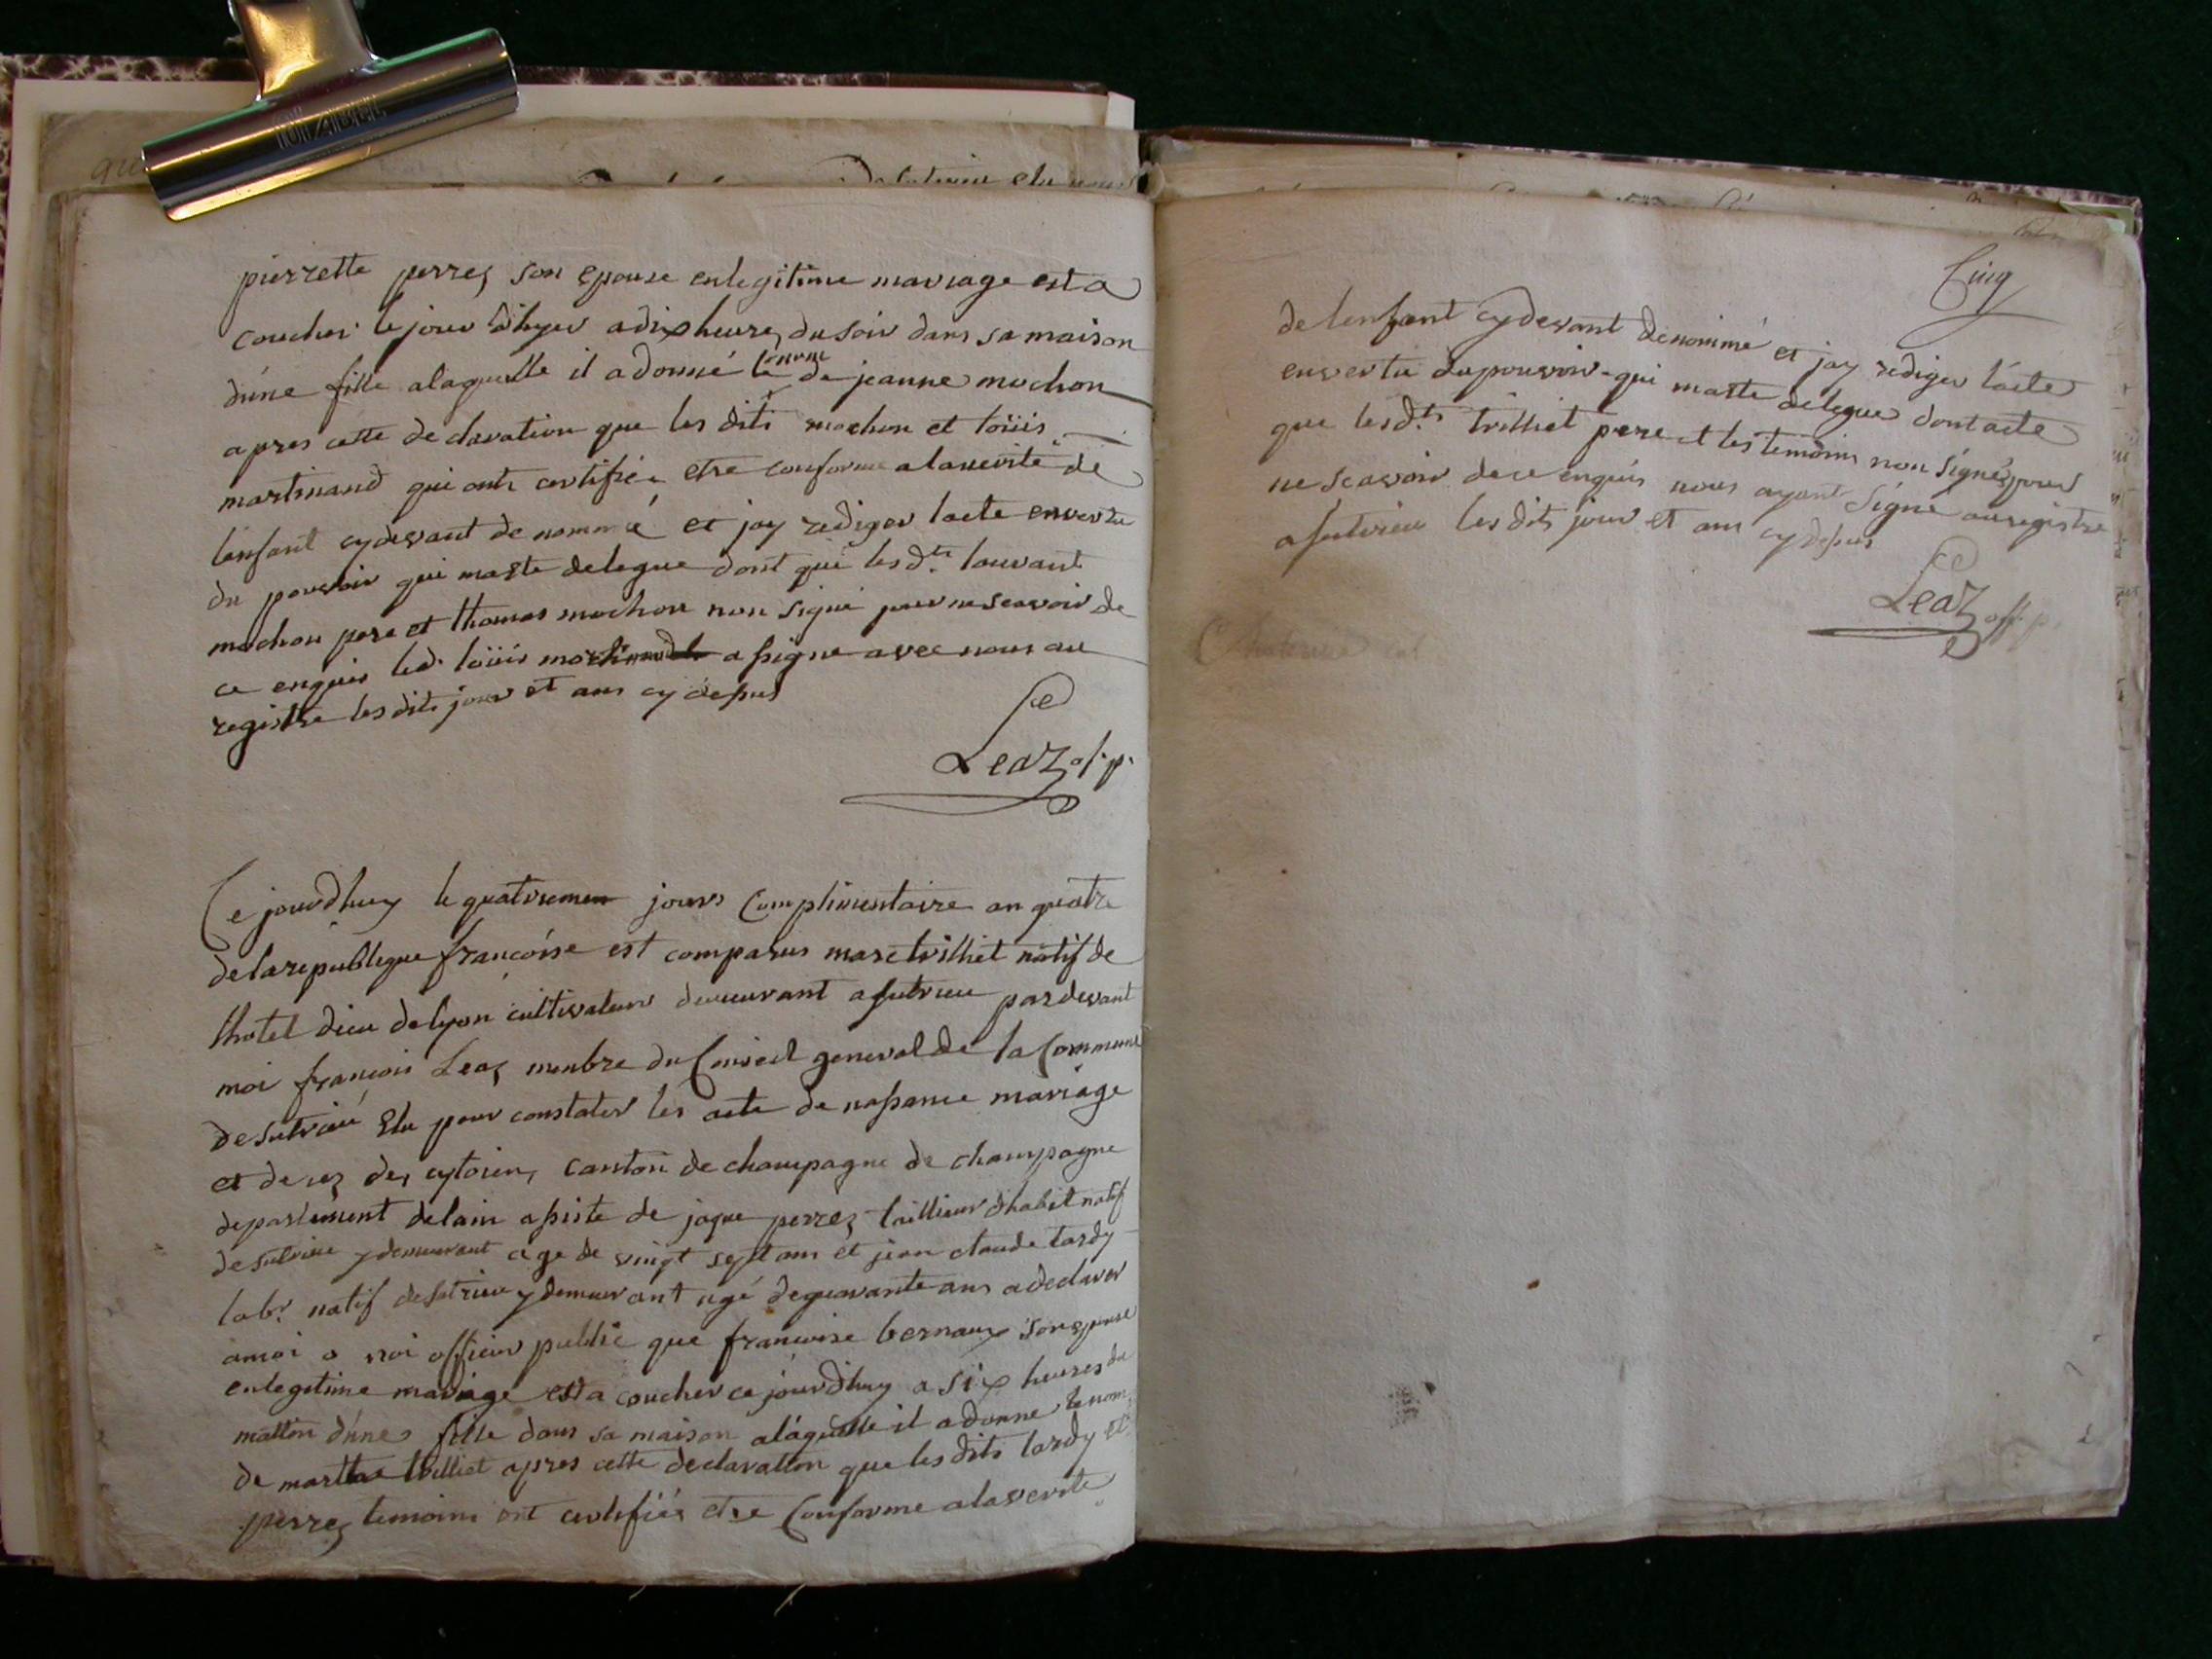 pierrette perrez son epouse enlegitime mariage est a
coucher le jour dhyer a dix heures du soir dans sa maison
dúne fille alaquelle il a donné le nom de jeanne mochon
apres cette declaration que les dits mochon et loüis
martinand qui onts certifiér etre conforme alaverité de
lenfant cydevant denommé et jay rediger lacte envertu
du pouvoir qui maste delegue dont que les dts laurant
mochon pere et thomas mochon non signé pour ne scavoir de
ce enquis led. loüis martinand a signe avec nous au
registre les dits jour et ans cy dessus
Leaz of. p.
Ce jourdhuy le quatriemen jours Complimentaire an quatre
delarepublique francóise est comparus marc trilliet natif de
lhotel dieu delyon cultivateur demeurant asutrieu pardevant
moi françois Leaz membre du Conseil general de la Commune
desutrieu Elu pour constater les acte de nassance mariage
et decez des cytoiens canton de champagne de champagne
departement delain assiste de jaque perrez tailleur dhabit natif
desutrieu y demeurant age de vingt sept ans et jean claude tardy
labr. natif desutrieu y demeurant agé dequarante ans a declarer
amoi o noi officier public que françoise bernaux son epouse
enlegitime mariage est a coucher ce jourdhuy a six heures du
mattin dúnes fille dans sa maison alaquelle il a donne le nom
de marthe trilliet apres cette declaration que les dits tardy et
perrez temoins ont certifiér etre Conforme alaverité
Cinq
delenfant cydevant denommé et jay rediger lácte
envertu dupouvoir qui maste delegue dont acte
que les dts trilliet pere et les temoins non signéz pour
ne scavoir de ce enquis nous ayant signé auregistre
asutrieu les dits jour et ans cy dessus
Leaz off. p.